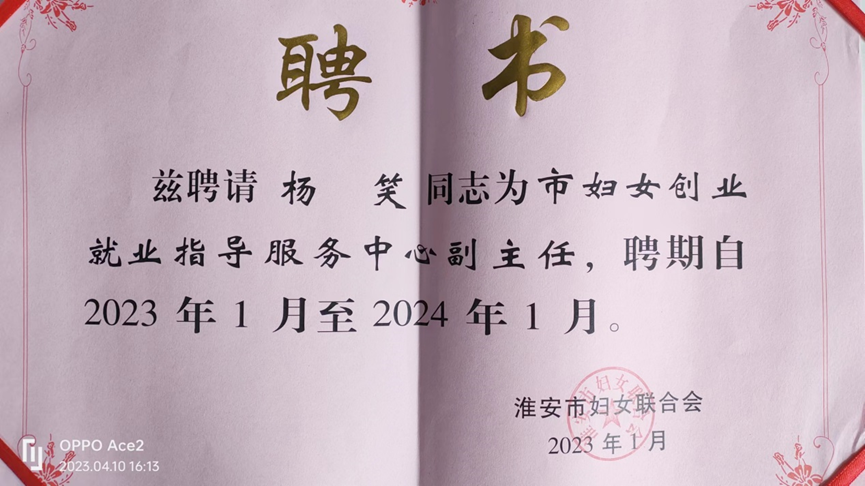 聘书
兹聘请 杨 笑 同志为市妇女创业
就业指导服务中心副主任，聘期自
2023 年 1 月至 2024 年 1 月。
淮安市妇女联合会
2023 年 1 月
OPPO Ace2
2023.04.10 16:13